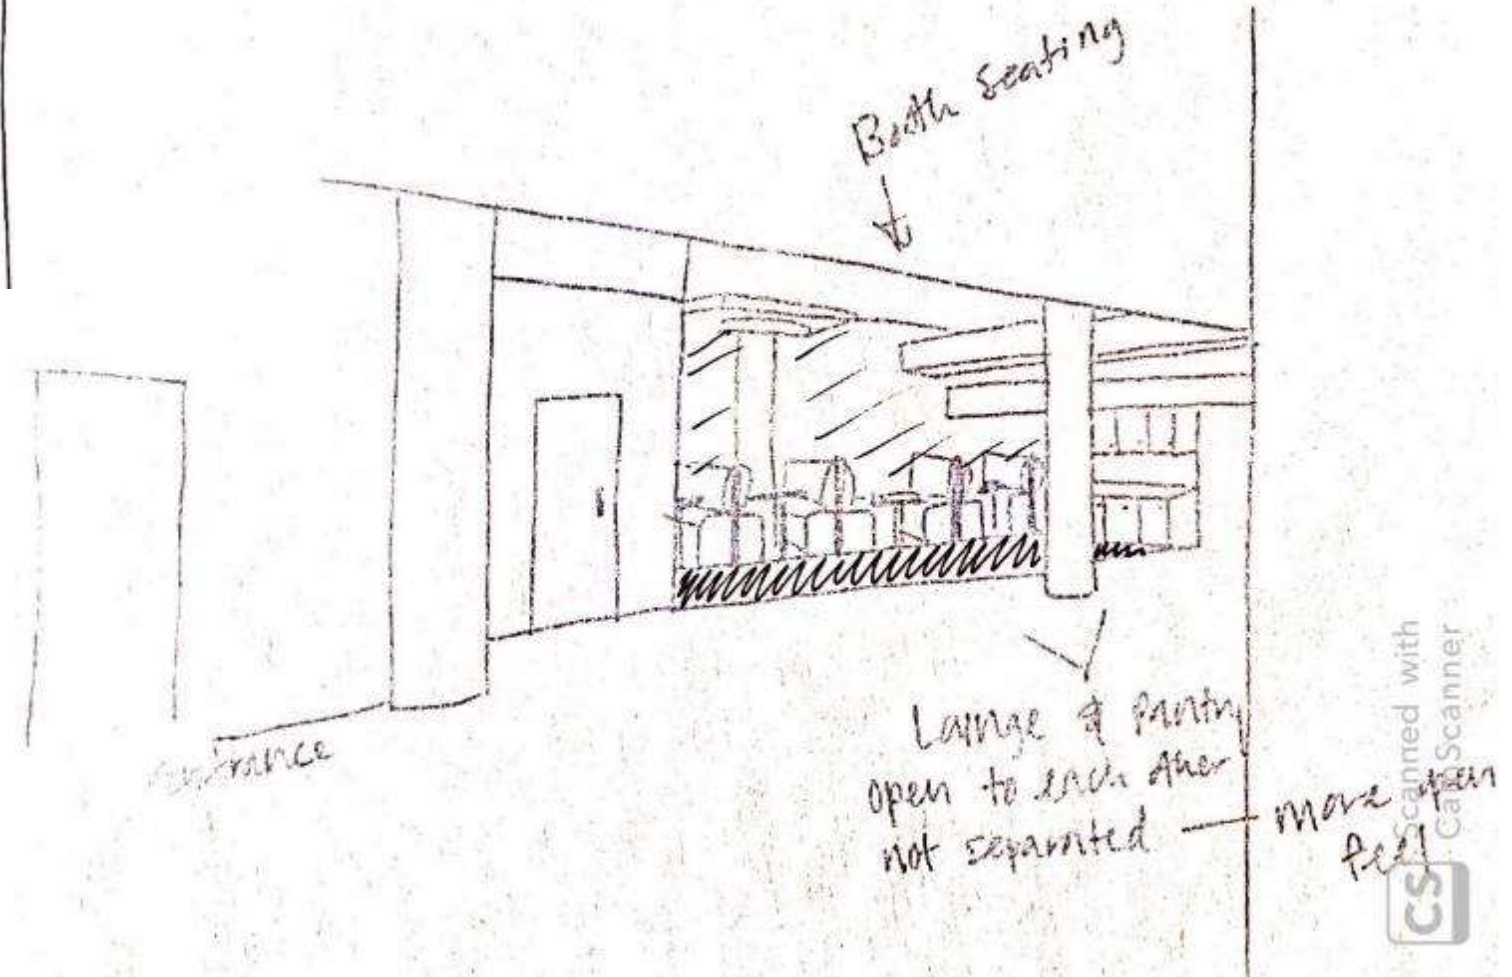 Booth Seating
Entrance
Lounge & Pantry
open to each other
not separated — more open
feel
Scanned with
CamScanner
CS